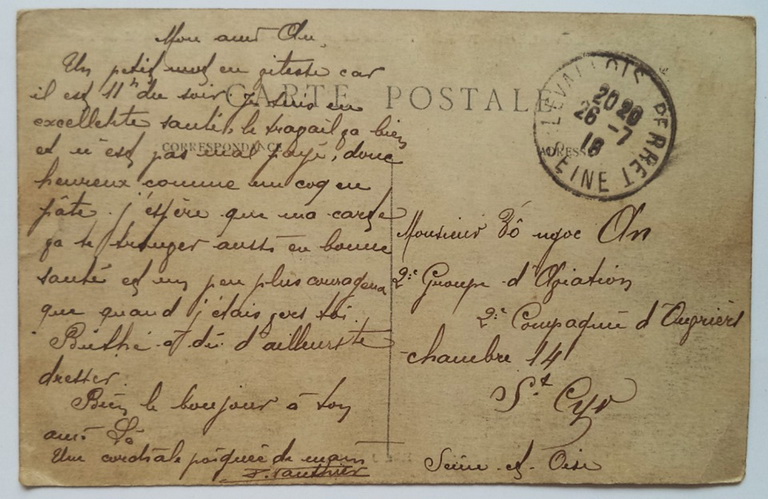 Mon ami An,
Un petit mot en vitesse car
il est 11h du soir, je suis en
excellente santé, le travail va bien
et n'est pas mal payé, donc
heureux comme un coq en
pâte. j'espère que ma carte
va te trouver aussi en bonne
santé et un peu plus courageux
que quand j'étais vers toi.
Berthé a dû d'ailleurs te
dresser.
Bien le bonjour à ton
ami Lê
Une cordiale poignée de main
CARTE POSTALE
CORRESPONDANCE
ADRESSE
LEVALLOIS-PERRET
20 20
26 - 7
18
SEINE
Monsieur Võ ngoc An
2e Groupe d'Aviation
2e Compagnie d'Ouvriers
chambre 14
St Cyr
Seine et Oise